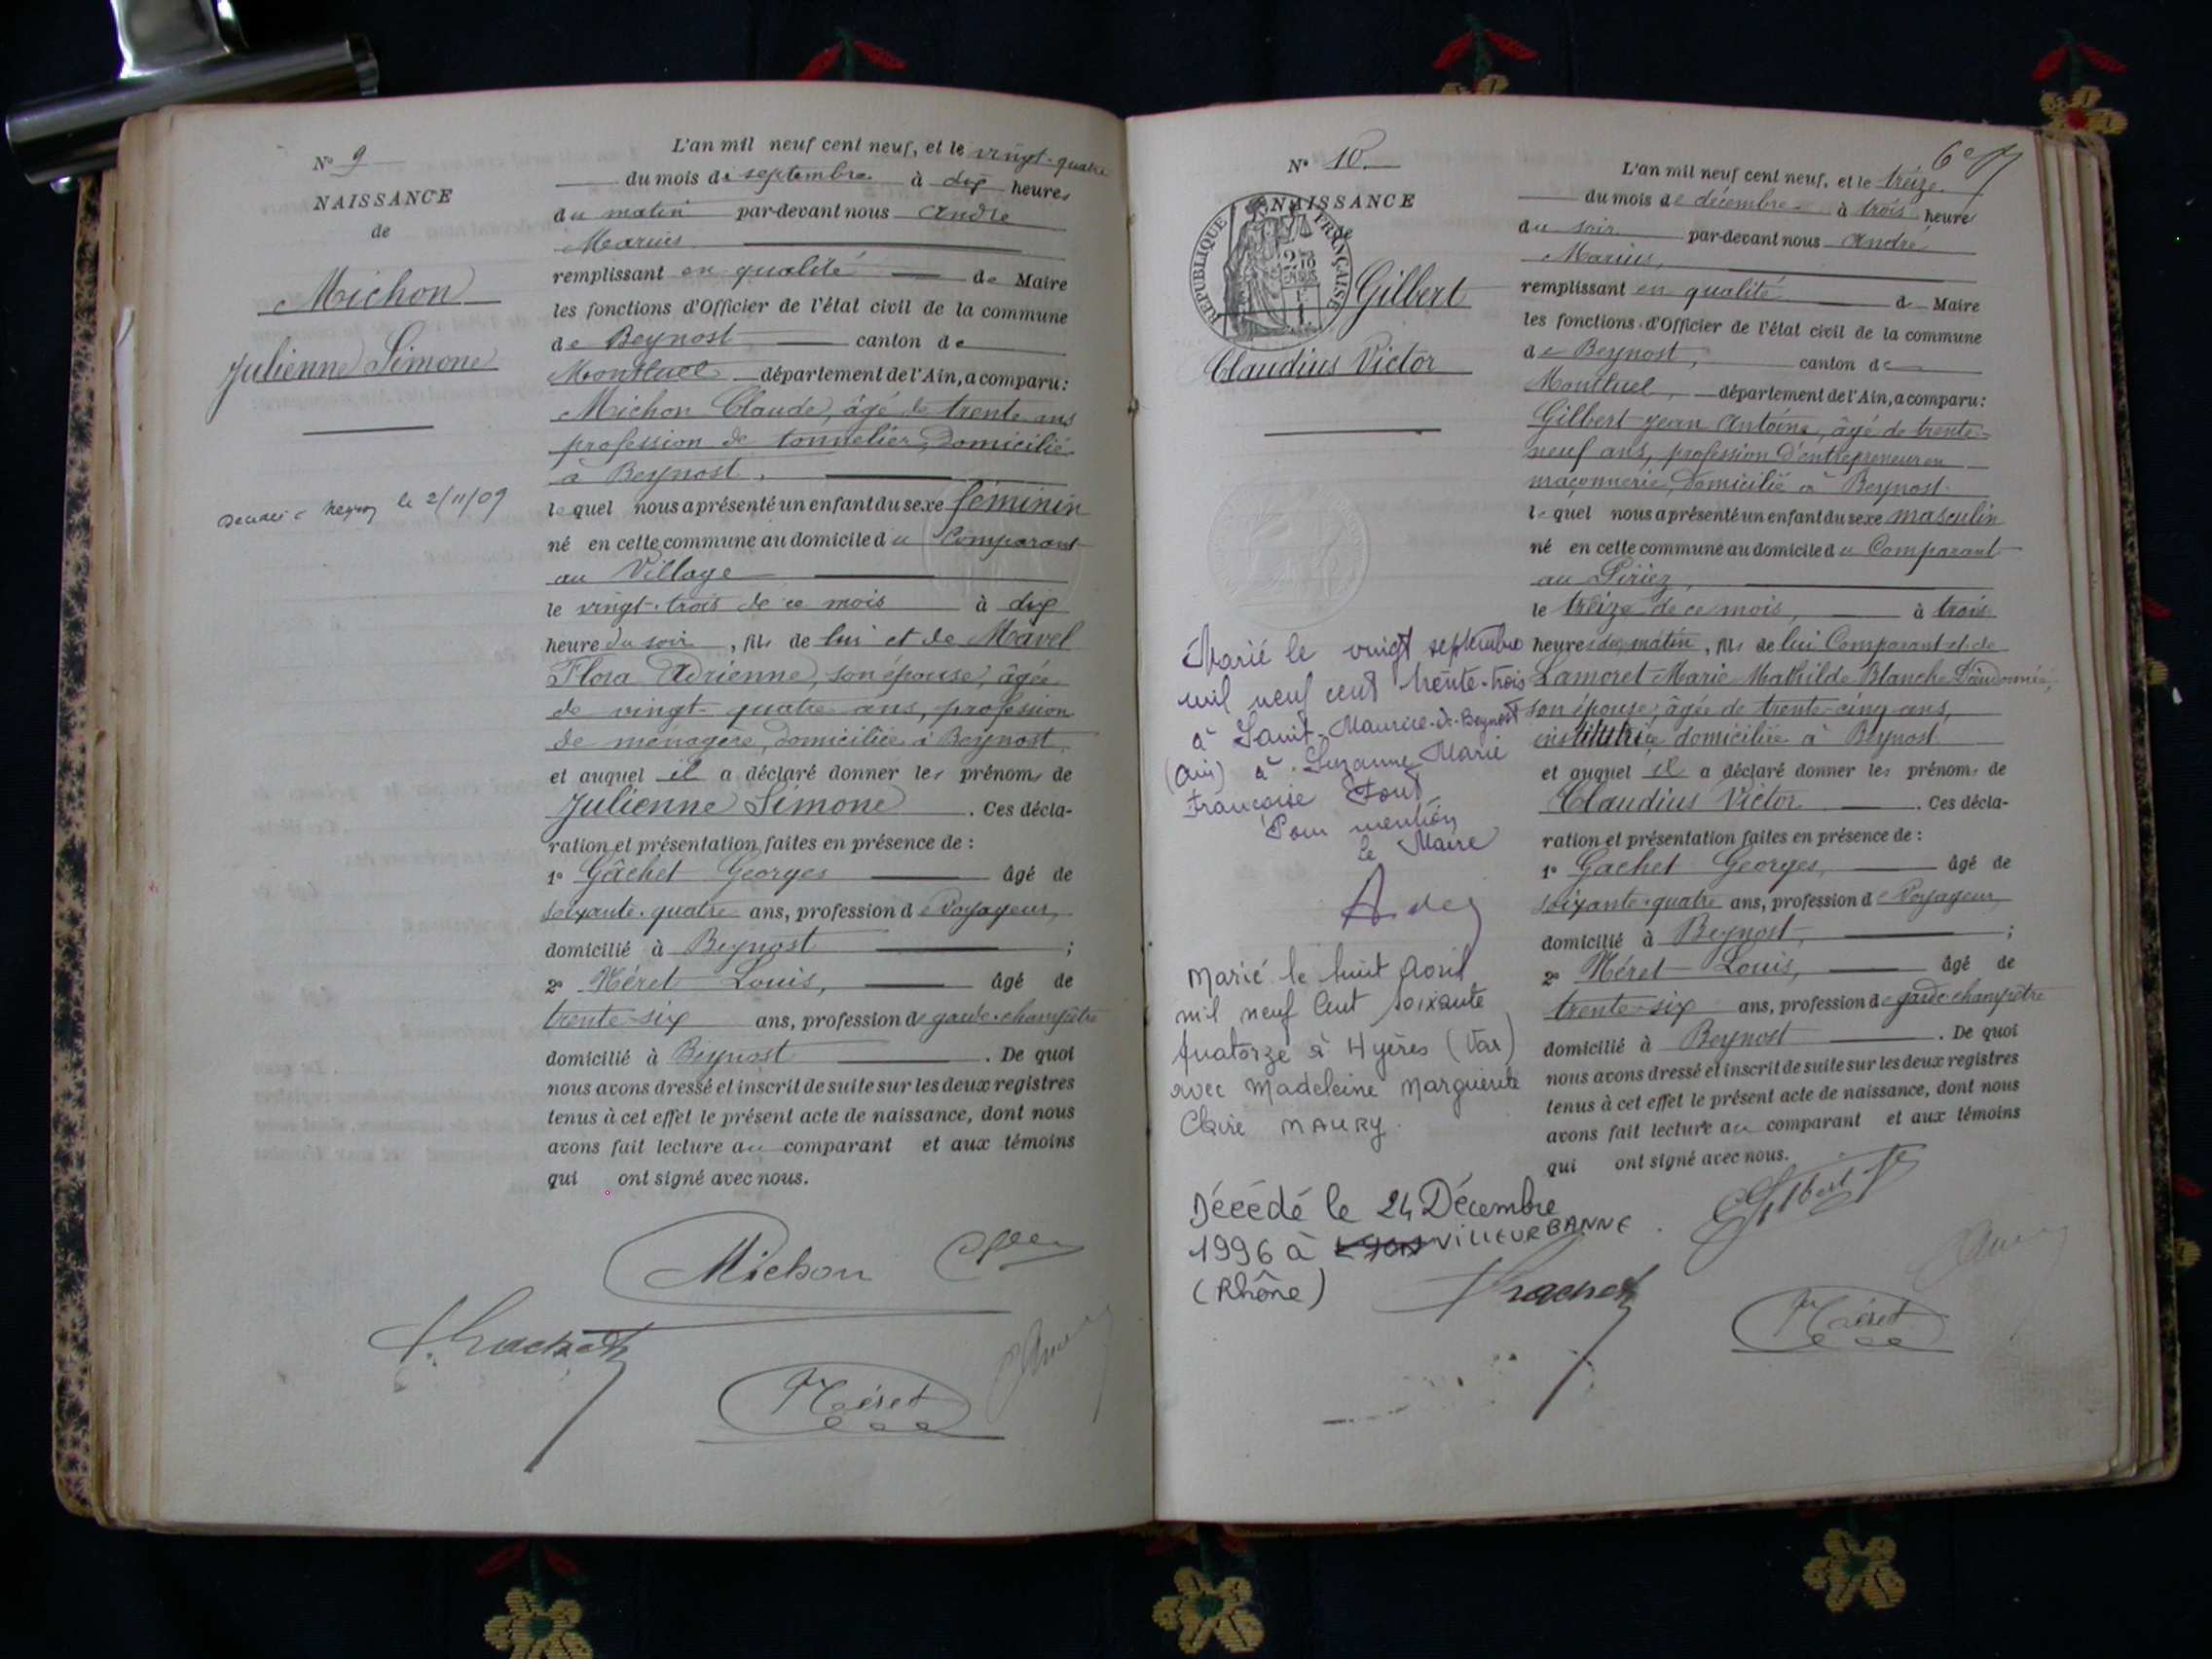 N° 9
NAISSANCE
de
Michon
Julienne Simone
le 2/11/09
L'an mil neuf cent neuf, et le vingt-quatre
du mois de septembre à dix heures
du matin par-devant nous André
Marius
remplissant en qualité de Maire
les fonctions d'Officier de l'état civil de la commune
de Beynost canton de
Montluel département de l'Ain, a comparu :
Michon Claude, âgé de trente ans
profession de tonnelier, domicilié
à Beynost.
lequel nous a présenté un enfant du sexe féminin
né en cette commune au domicile du Comparant
au Village
le vingt-trois de ce mois à dix
heure du soir, fils de lui et de Mavel
Flora Adrienne, son épouse, âgée
de vingt-quatre ans, profession
de ménagère, domiciliée à Beynost,
et auquel il a déclaré donner les prénoms de
Julienne Simone. Ces décla-
ration et présentation faites en présence de :
1° Gâchet Georges âgé de
soixante-quatre ans, profession de Voyageur,
domicilié à Beynost ;
2° Méret Louis, âgé de
trente-six ans, profession de garde-champêtre
domicilié à Beynost. De quoi
nous avons dressé et inscrit de suite sur les deux registres
tenus à cet effet le présent acte de naissance, dont nous
avons fait lecture au comparant et aux témoins
qui ont signé avec nous.
Michon
Méret
N° 10
NAISSANCE
de
RÉPUBLIQUE FRANÇAISE
Gilbert
Claudius Victor
Marié le vingt septembre
mil neuf cent trente-trois
à Saint-Maurice-de-Beynost
(Ain) à Suzanne Marie
Françoise
Pour mention
Le Maire
Marié le huit Avril
mil neuf Cent soixante
quatorze à Hyères (Var)
avec Madeleine Marguerite
Claire MAURY.
Décédé le 24 Décembre
1996 à VILLEURBANNE.
(Rhône)
L'an mil neuf cent neuf, et le treize
du mois de décembre à trois heures
du soir par-devant nous André
Marius,
remplissant en qualité de Maire
les fonctions d'Officier de l'état civil de la commune
de Beynost, canton de
Montluel, département de l'Ain, a comparu :
Gilbert Jean Antoine, âgé de trente-
neuf ans, profession d'entrepreneur en
maçonnerie, domicilié à Beynost
lequel nous a présenté un enfant du sexe masculin
né en cette commune au domicile du Comparant
au
le treize de ce mois, à trois
heures du matin, fils de lui Comparant et de
Lamoret Marie Mathilde Blanche Dieudonnée,
son épouse, âgée de trente-cinq ans,
institutrice domiciliée à Beynost
et auquel il a déclaré donner les prénoms de
Claudius Victor. Ces décla-
ration et présentation faites en présence de :
1° Gachet Georges, âgé de
soixante-quatre ans, profession de Voyageur,
domicilié à Beynost, ;
2° Méret Louis, âgé de
trente-six ans, profession de garde-champêtre
domicilié à Beynost. De quoi
nous avons dressé et inscrit de suite sur les deux registres
tenus à cet effet le présent acte de naissance, dont nous
avons fait lecture au comparant et aux témoins
qui ont signé avec nous.
Gilbert
Méret